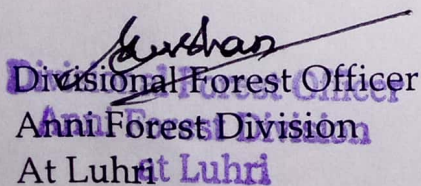 Divisional Forest Officer
Anni Forest Division
At Luhri
Divisional Forest Officer
Anni Forest Division
at Luhri